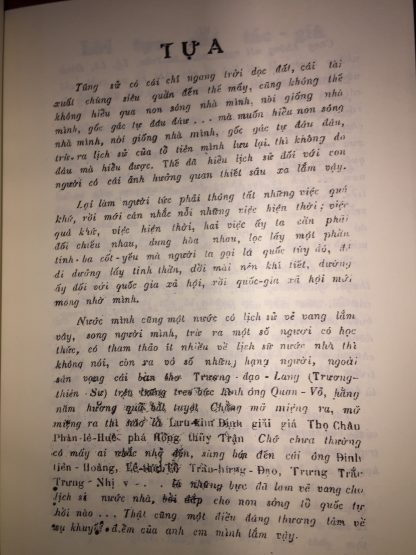 TỰA
Từng sử có cái chí ngang trời dọc đất, cái tài
xuất chúng siêu quần đến thế mấy, cũng không thể
không hiểu qua non sông nhà mình, nòi giống nhà
mình, gốc gác tự đâu đâu... mà muốn hiểu non sông
nhà mình, nòi giống nhà mình, gốc gác tự đâu đâu,
trừ ra lịch sử của tổ tiên mình lưu lại thì không do
đâu mà hiểu được. Thế đã hiểu lịch sử đối với con
người có cái ảnh hưởng quan thiết sâu xa lắm vậy.
Lại làm người tức phải thông tất những việc quá
khứ, rồi mới cân nhắc nổi những việc hiện thời; việc
quá khứ, việc hiện thời, hai việc ấy ta cần phải
đối chiếu nhau, dung hòa nhau, lọc lấy một phần
tinh-ba cốt-yếu mà người ta gọi là quốc túy đó, để
di dưỡng lấy tinh thần, dồi mài nên khí tiết, dường
ấy đối với quốc gia xã hội, rồi quốc-gia xã hội mới
mong nhờ mình.
Nước mình cũng một nước có lịch sử vẻ vang lắm
vậy, song người mình, trừ ra một số người có học
thức, có tham thảo ít nhiều về lịch sử nước nhà thì
không nói, còn ra vô số những hạng người, ngoài
sản vọng cái bàn thờ Trương-đạo-Lang (Trương-
thiên-Sư) trên tường treo bức hình ông Quan-Võ, hằng
năm hưởng quả bất tuyệt. Chẳng mở miệng ra, mở
miệng ra thì nào là Lưu kim Đính giải giá Thọ Châu
Phàn-lê-Huê phá Hồng thủy Trận Chớ chưa thường
có mấy ai nhắc nhở đến, sùng bái đến cái ông Đinh
tiên-Hoàng, Trần-hưng-Đạo, Trưng Trắc
Trưng-Nhị v... là những bực đã làm vẻ vang cho
lịch sử nước nhà, bồi đắp cho non sông tổ quốc tự
hồi nào... Thật cũng một điều đáng thương tâm về
sự khuyết điểm của anh em mình lắm vậy.